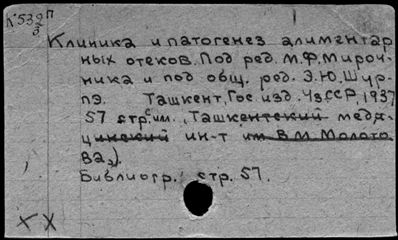 К539П
3
Клиника и патогенез алиментар
ных отеков. Под ред. М.Ф. Мироч-
ника и под общ. ред. Э.Ю. Шур-
пэ. Ташкент, Гос. изд. УзССР, 1937
57 стр. им. (Ташкентский меди-
цинский ин-т им В М Молото
ва).
Библиогр.: стр. 57.
XX